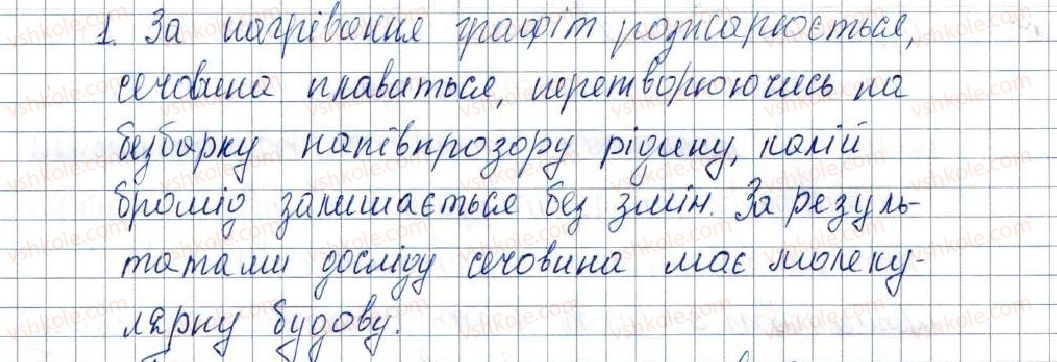 1. За нагрівання графіт розжарюється,
сечовина плавиться, перетворюючись на
безбарку напівпрозору рідину, калій
бромід залишається без змін. За резуль-
татами досліду сечовина має молеку-
лярну будову.